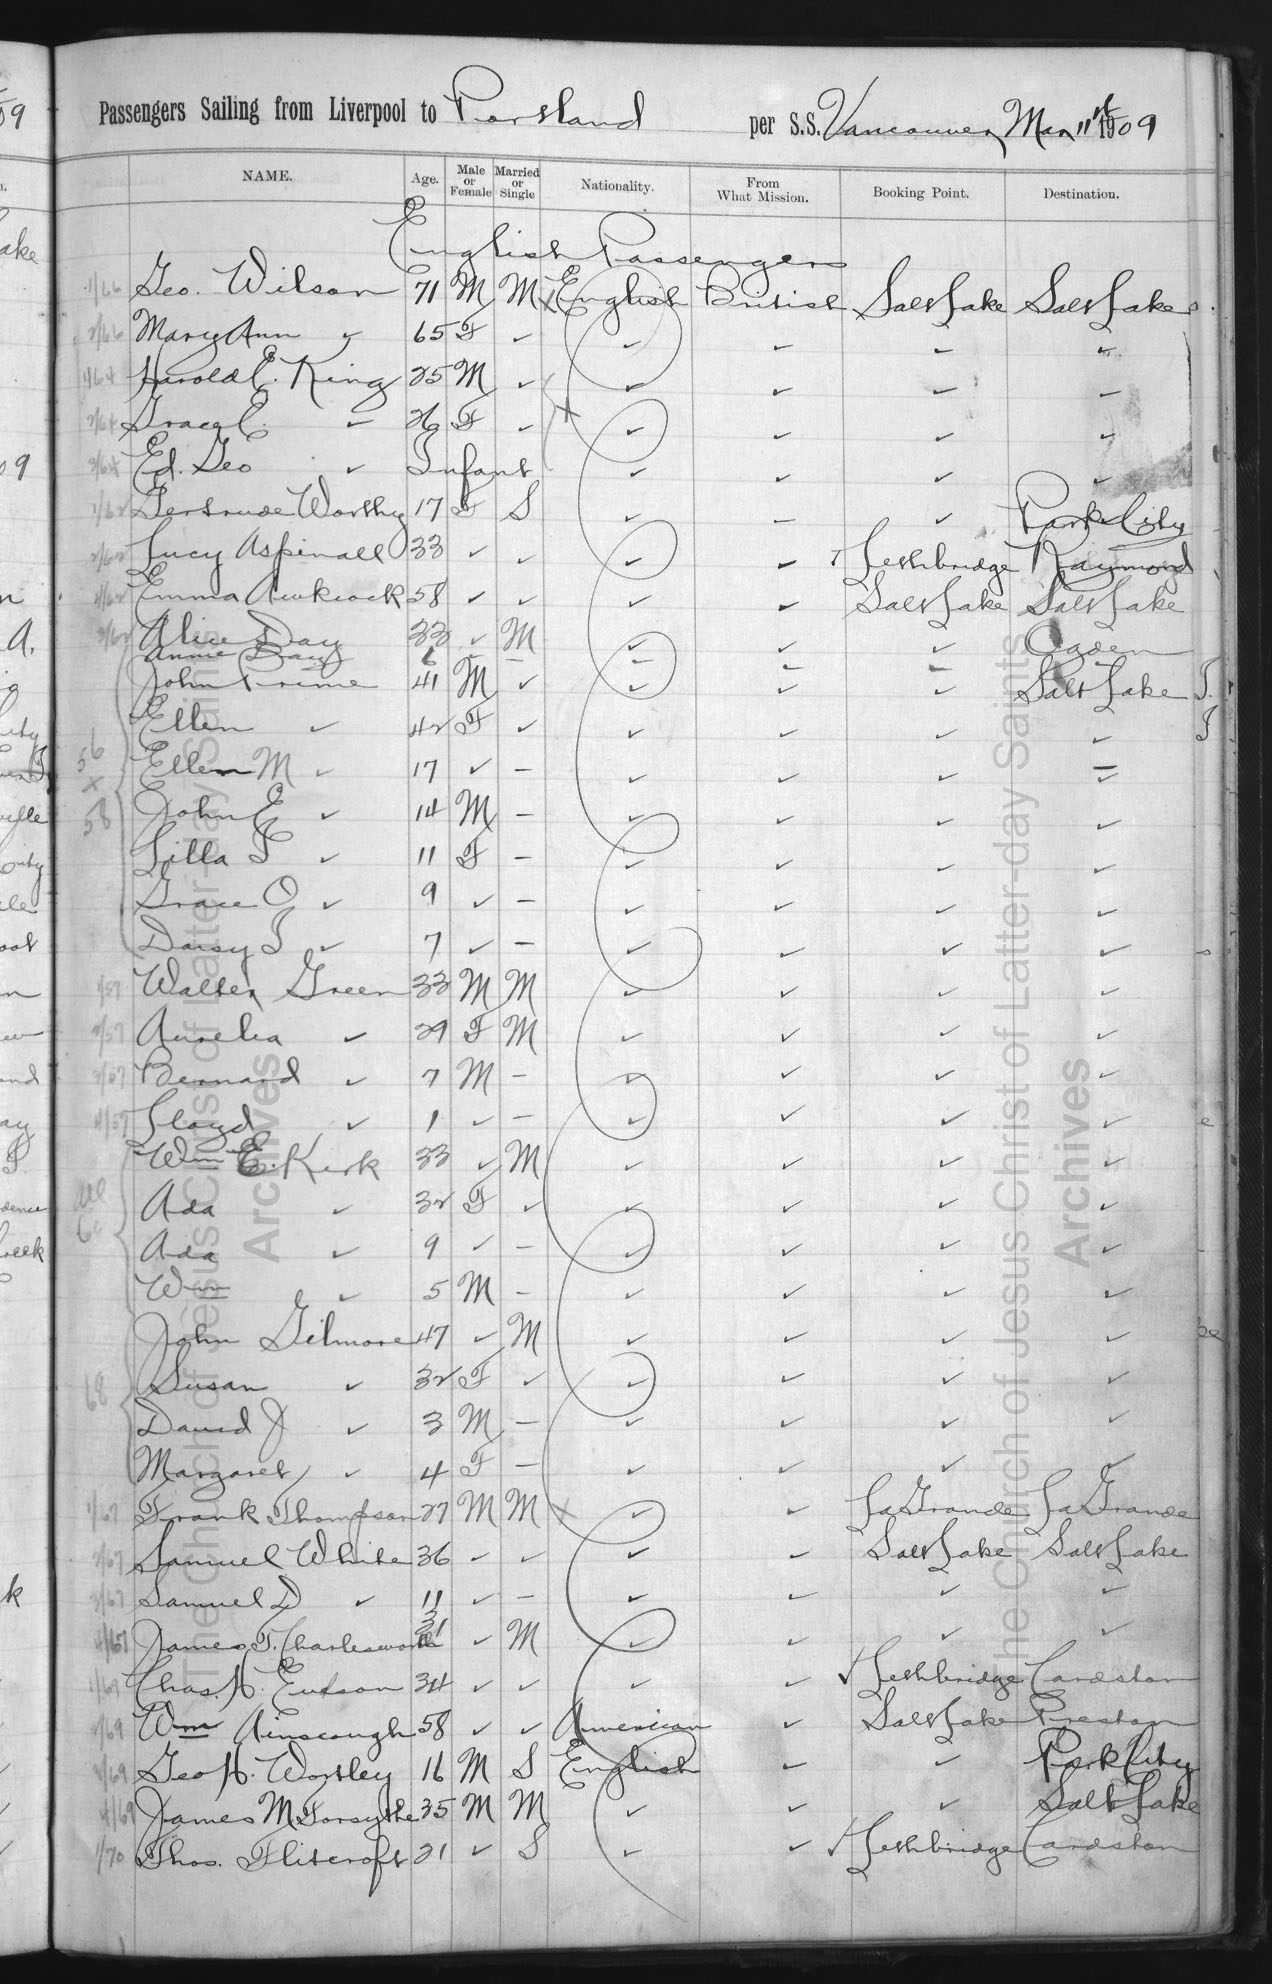 Passengers Sailing from Liverpool to Portland per S.S. Vancouver Mar 11th 1909
NAME. Age. Male or Female Married or Single Nationality. From What Mission. Booking Point. Destination.
English Passengers
1/66 Geo. Wilson 71 M M x English British Salt Lake Salt Lake
2/66 Mary Ann ✓ 65 F ✓ ✓ ✓ ✓ ✓
1/64 Harold E. King 25 M ✓ ✓ ✓ ✓ ✓
2/64 Grace E. ✓ 26 F ✓ x ✓ ✓ ✓ ✓
3/64 Ed. Geo ✓ Infant ✓ ✓ ✓ ✓
1/62 Gertrude Worthy 17 F S ✓ – ✓ Park City
2/62 Lucy Aspinall 33 ✓ ✓ ✓ ✓ Lethbridge Raymond
4/62 Emma 58 ✓ ✓ ✓ ✓ Salt Lake Salt Lake
3/62 Alice Day 33 ✓ M ✓ ✓ ✓ Ogden
Annie Day 6 – – – – –
John Prime 41 M ✓ ✓ ✓ ✓ Salt Lake
Ellen ✓ 42 F ✓ ✓ ✓ ✓ ✓
56 Ellen M ✓ 17 ✓ – ✓ ✓ ✓ ✓
x
58 John E ✓ 14 M – ✓ ✓ ✓ ✓
Lilla T ✓ 11 F – ✓ ✓ ✓ ✓
Grace O ✓ 9 ✓ – ✓ ✓ ✓ ✓
Daisy T ✓ 7 ✓ – ✓ ✓ ✓ ✓
1/57 Walter Green 33 M M ✓ ✓ ✓ ✓
2/57 Aurelia ✓ 29 F M ✓ ✓ ✓ ✓
3/57 Bernard ✓ 7 M – ✓ ✓ ✓ ✓
4/57 Lloyd ✓ 1 ✓ – ✓ ✓ ✓ ✓
Wm E. Kirk 33 ✓ M ✓ ✓ ✓ ✓
all Ada ✓ 32 F ✓ ✓ ✓ ✓ ✓
60 Ada ✓ 9 ✓ – ✓ ✓ ✓ ✓
Wm ✓ 5 M – ✓ ✓ ✓ ✓
John Gilmore 47 ✓ M ✓ ✓ ✓ ✓
68 Susan ✓ 32 F ✓ ✓ ✓ ✓ ✓
David J ✓ 3 M – ✓ ✓ ✓ ✓
Margaret ✓ 4 F – ✓ ✓ ✓ ✓
1/67 Frank Thompson 27 M M x ✓ ✓ La Grande La Grande
2/67 Samuel White 36 ✓ ✓ ✓ ✓ Salt Lake Salt Lake
3/67 Samuel D ✓ 11 ✓ – ✓ ✓ ✓ ✓
4/67 James T. Charlesworth 31 ✓ M ✓ ✓ ✓ ✓
1/69 Chas. H. Evason 34 ✓ ✓ ✓ ✓ ✓ Lethbridge Cardston
2/69 Wm Ainscough 58 ✓ ✓ American ✓ Salt Lake Preston
3/69 Geo H. Wortley 16 M S English ✓ ✓ Park City
4/69 James M Forsythe 35 M M ✓ ✓ ✓ Salt Lake
1/70 Thos. Flitcroft 21 ✓ S ✓ ✓ ✓ Lethbridge Cardston
The Church of Jesus Christ of Latter-day Saints
Archives
The Church of Jesus Christ of Latter-day Saints
Archives